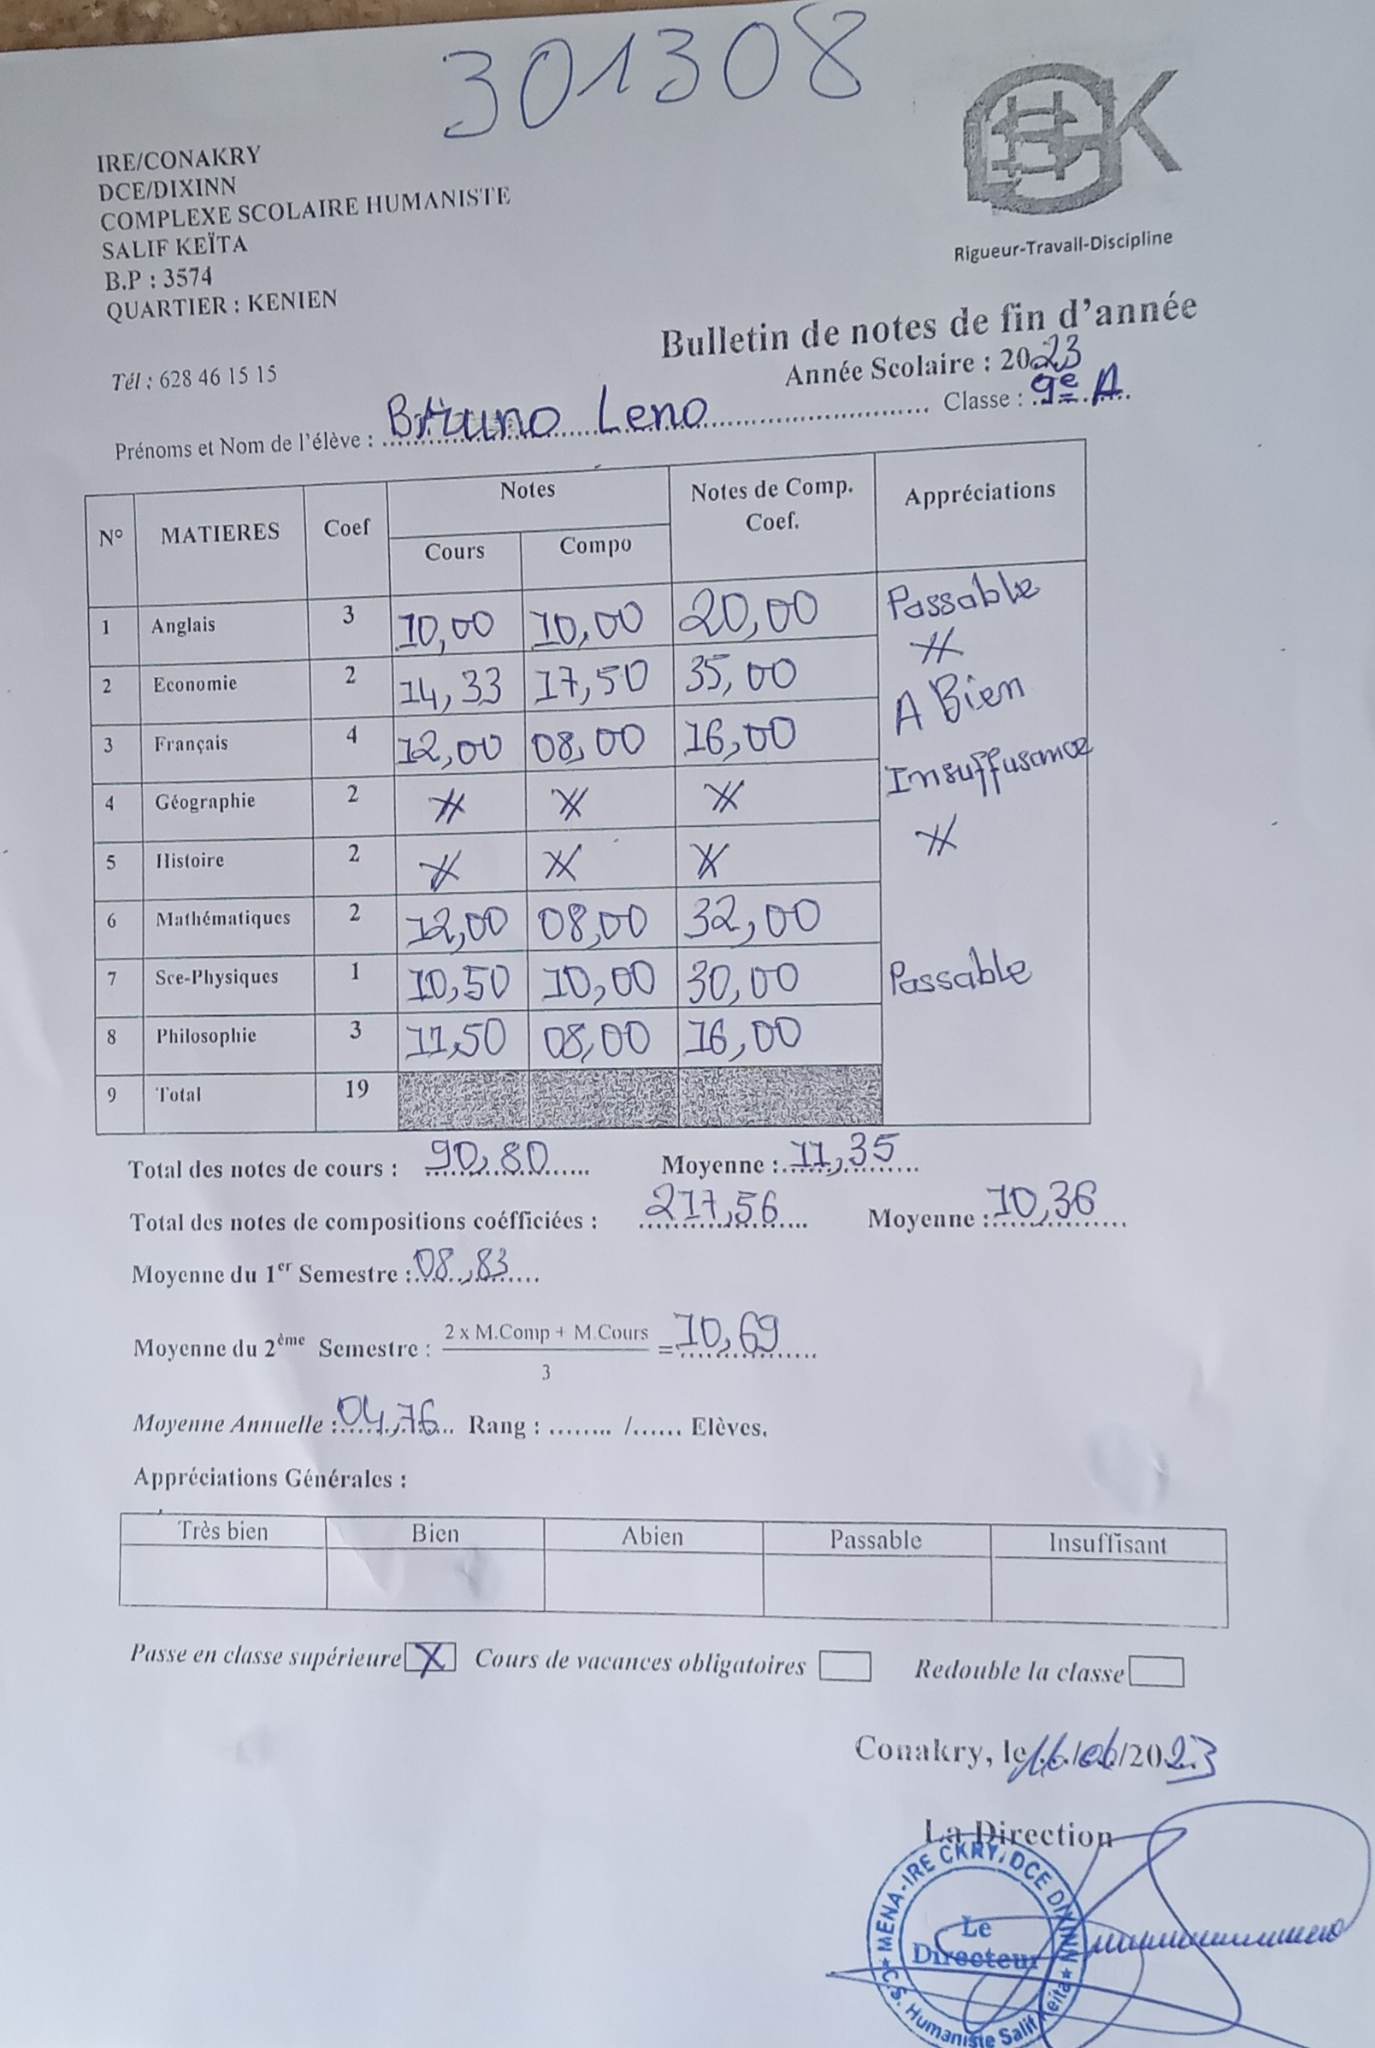 301308
IRE/CONAKRY
DCE/DIXINN
COMPLEXE SCOLAIRE HUMANISTE
SALIF KEÏTA
B.P : 3574
QUARTIER : KENIEN
Rigueur-Travail-Discipline
Bulletin de notes de fin d'année
Tél : 628 46 15 15
Année Scolaire : 2023
Prénoms et Nom de l'élève : Bruno Leno Classe : 9e A
N° MATIERES Coef Notes Notes de Comp. Coef. Appréciations
Cours Compo
1 Anglais 3 10,00 10,00 20,00 Passable
2 Economie 2 14,33 17,50 35,00 A Bien
3 Français 4 12,00 08,00 16,00 Insuffusance
4 Géographie 2
5 Histoire 2
6 Mathématiques 2 12,00 08,00 32,00
7 Sce-Physiques 1 10,50 10,00 30,00 Passable
8 Philosophie 3 11,50 08,00 16,00
9 Total 19
Total des notes de cours : 90,80 Moyenne : 11,35
Total des notes de compositions coéfficiées : 217,56 Moyenne : 10,36
Moyenne du 1er Semestre : 08,83
Moyenne du 2ème Semestre : 2 x M.Comp + M.Cours / 3 = 10,69
Moyenne Annuelle : 04,76 Rang : ........ /...... Elèves.
Appréciations Générales :
Très bien Bien Abien Passable Insuffisant
Passe en classe supérieure X Cours de vacances obligatoires Redouble la classe
Conakry, le 16/06/2023
La Direction
MENA-IRE CKRY/DCE DIXINN
Le
Directeur
C.S. Humaniste Salif Keïta